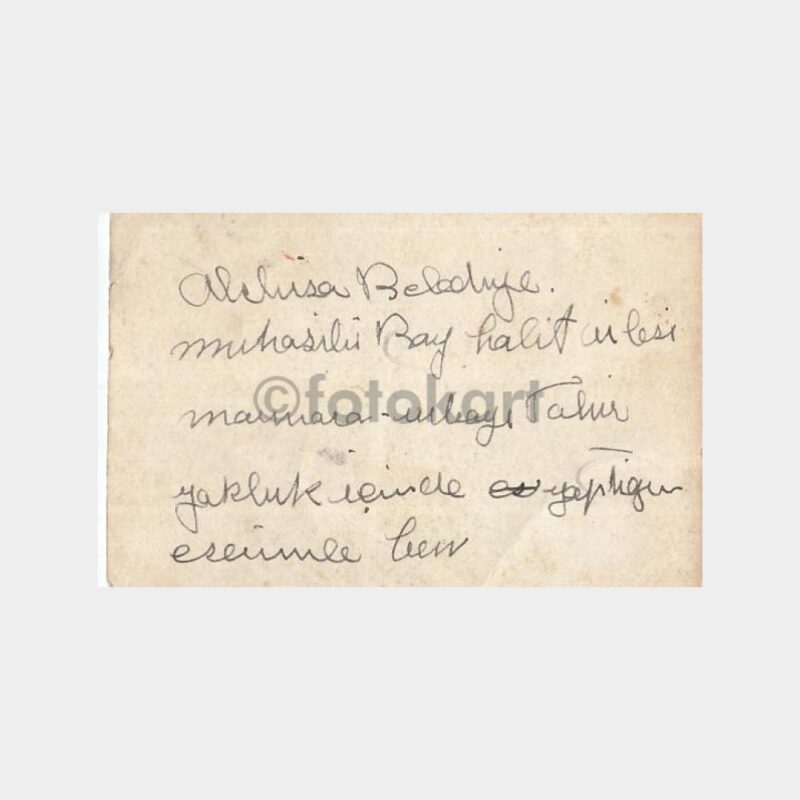 Akhisar Belediye.
muhasibi Bay halit
marmara Tahir
yokluk içinde yaptığım
eserimle ben
©fotokart